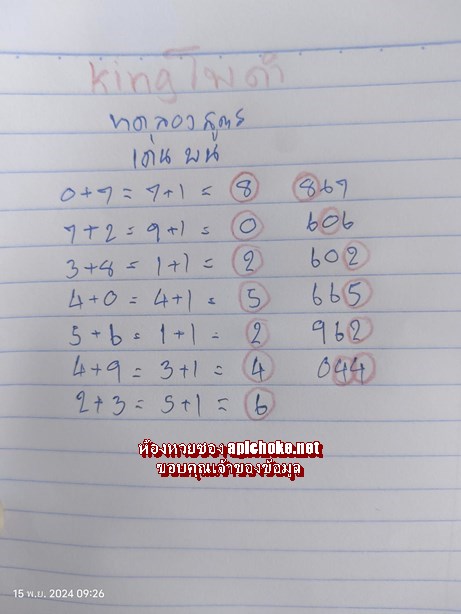 kingโพดำ
ทดลองสูตร
เด่นบน
0+7 = 7+1 = 8 867
7+2 = 9+1 = 0 606
3+8 = 1+1 = 2 602
4+0 = 4+1 = 5 665
5+6 = 1+1 = 2 962
4+9 = 3+1 = 4 044
2+3 = 5+1 = 6
ห้องหวยซอง apichoke.net
ขอบคุณเจ้าของข้อมูล
15 พ.ย. 2024 09:26